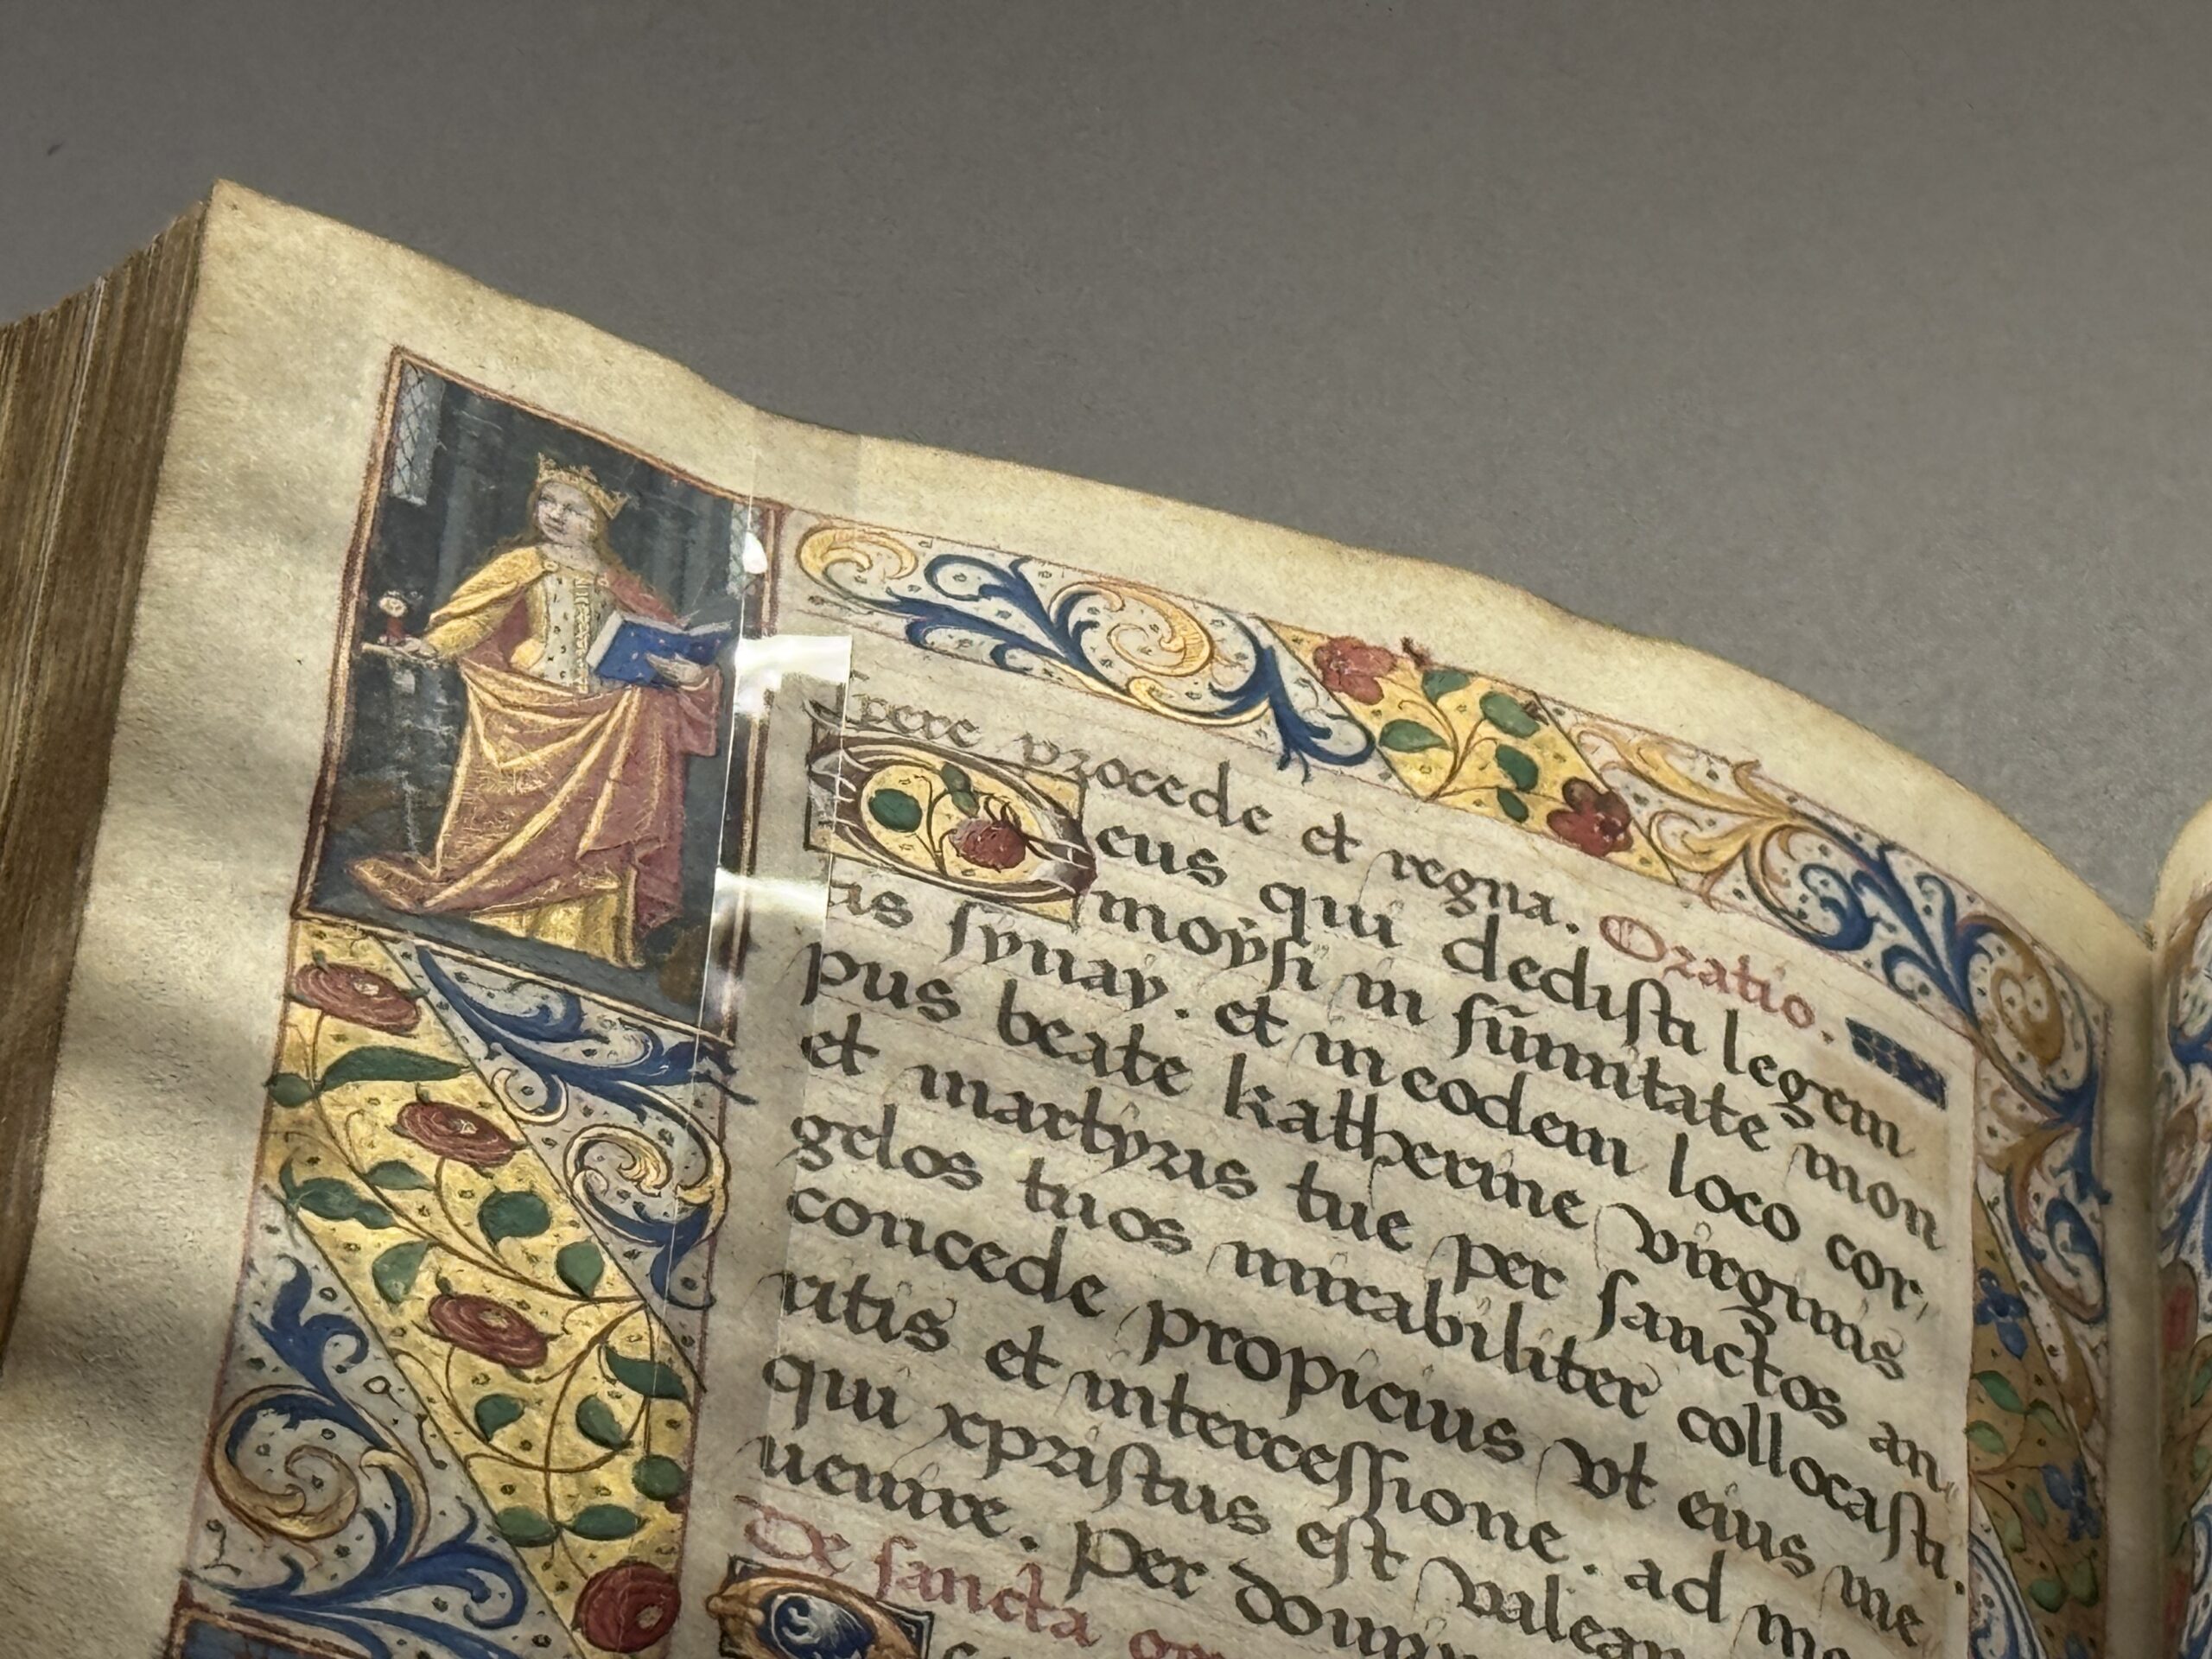 procede et regna. Oratio.
Deus qui dedisti legem
moysi in sūmitate mon
tis synay. et in eodem loco cor
pus beate katherine virginis
et martyris tue per sanctos an
gelos tuos mirabiliter collocasti.
concede propicius vt eius me
ritis et intercessione. ad
qui xpristus est
uenire. Per
De sancta